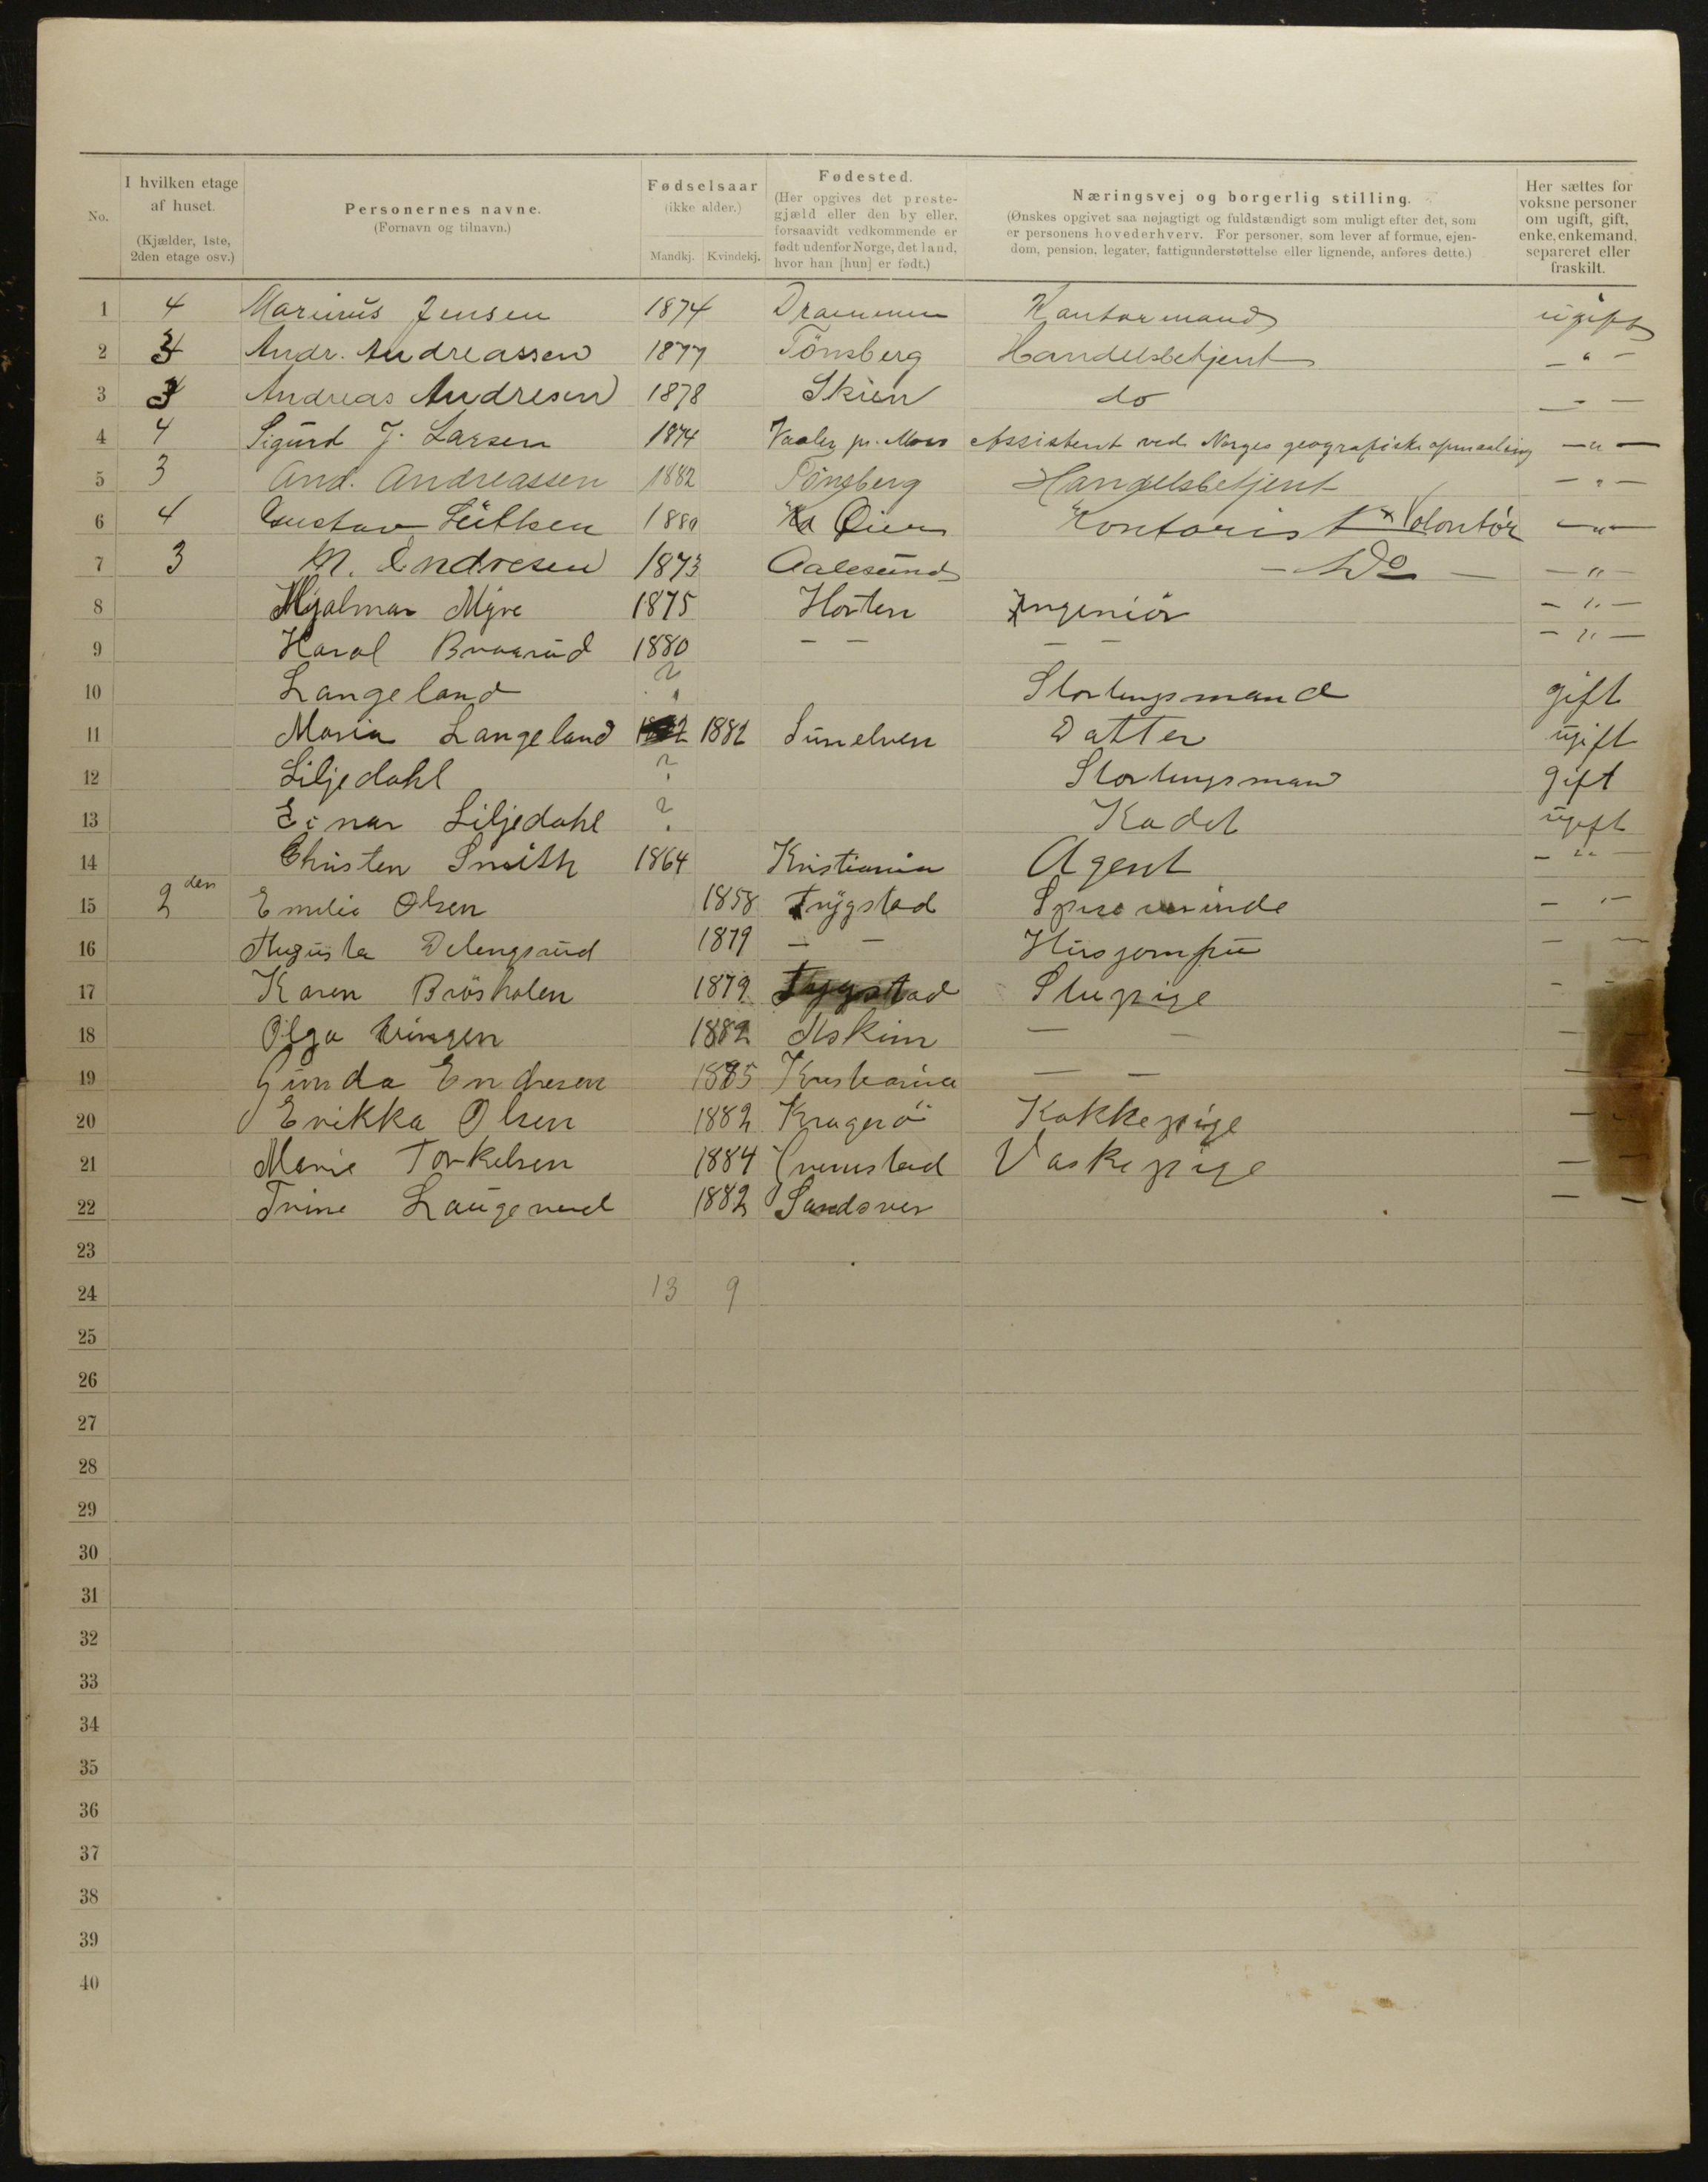 No.
I hvilken etage af huset. (Kjælder, 1ste, 2den etage osv.)
Personernes navne. (Fornavn og tilnavn.)
Fødselsaar (ikke alder.) Mandkj. Kvindekj.
Fødested. (Her opgives det prestegjæld eller den by eller, forsaavidt vedkommende er født udenfor Norge, det land, hvor han [hun] er født.)
Næringsvej og borgerlig stilling. (Ønskes opgivet saa nøjagtigt og fuldstændigt som muligt efter det, som er personens hovederhverv. For personer, som lever af formue, ejendom, pension, legater, fattigunderstøttelse eller lignende, anføres dette.)
Her sættes for voksne personer om ugift, gift, enke, enkemand, separeret eller fraskilt.
1 4 Marius Jensen 1874 Drammen Kontormand ugift
2 3 Andr. Andreassen 1877 Tönsberg Handelsbetjent — " —
3 3 Andreas Andresen 1878 Skien do — " —
4 4 Sigurd J. Larsen 1874 Vaaler pr. Moss Assistent ved Norges geografiske opmaaling — " —
5 3 And. Andreassen 1882 Tönsberg Handelsbetjent — " —
6 4 Gustav Lütken 1880 Øier Kontorist Volontør — " —
7 3 M. Endresen 1873 Aalesund — Do — — " —
8 Hjalmar Myre 1875 Horten Ingeniør — " —
9 Haral Braarud 1880 — — — — — " —
10 Langeland ? Stortingsmand gift
11 Maria Langeland 1882 Sunelven Datter ugift
12 Liljedahl ? Stortingsman gift
13 Einar Liljedahl ? Kadet ugift
14 Christen Smith 1864 Kristiania Agent — " —
15 2den Emilie Olsen 1858 Trygstad — " —
16 Augusta 1879 — — Husjomfru — —
17 Karen 1879 Trygstad Stupige — —
18 Olga 1882 Askim — — —
19 Gunda Endresen 1885 Kristiania — — —
20 Erikka Olsen 1882 Kragerö Kokkepige —
21 Marie Torkelsen 1884 Grimstad Vaskepige — —
22 Trine Laugerud 1882 Sandsver — —
23
24 13 9
25
26
27
28
29
30
31
32
33
34
35
36
37
38
39
40